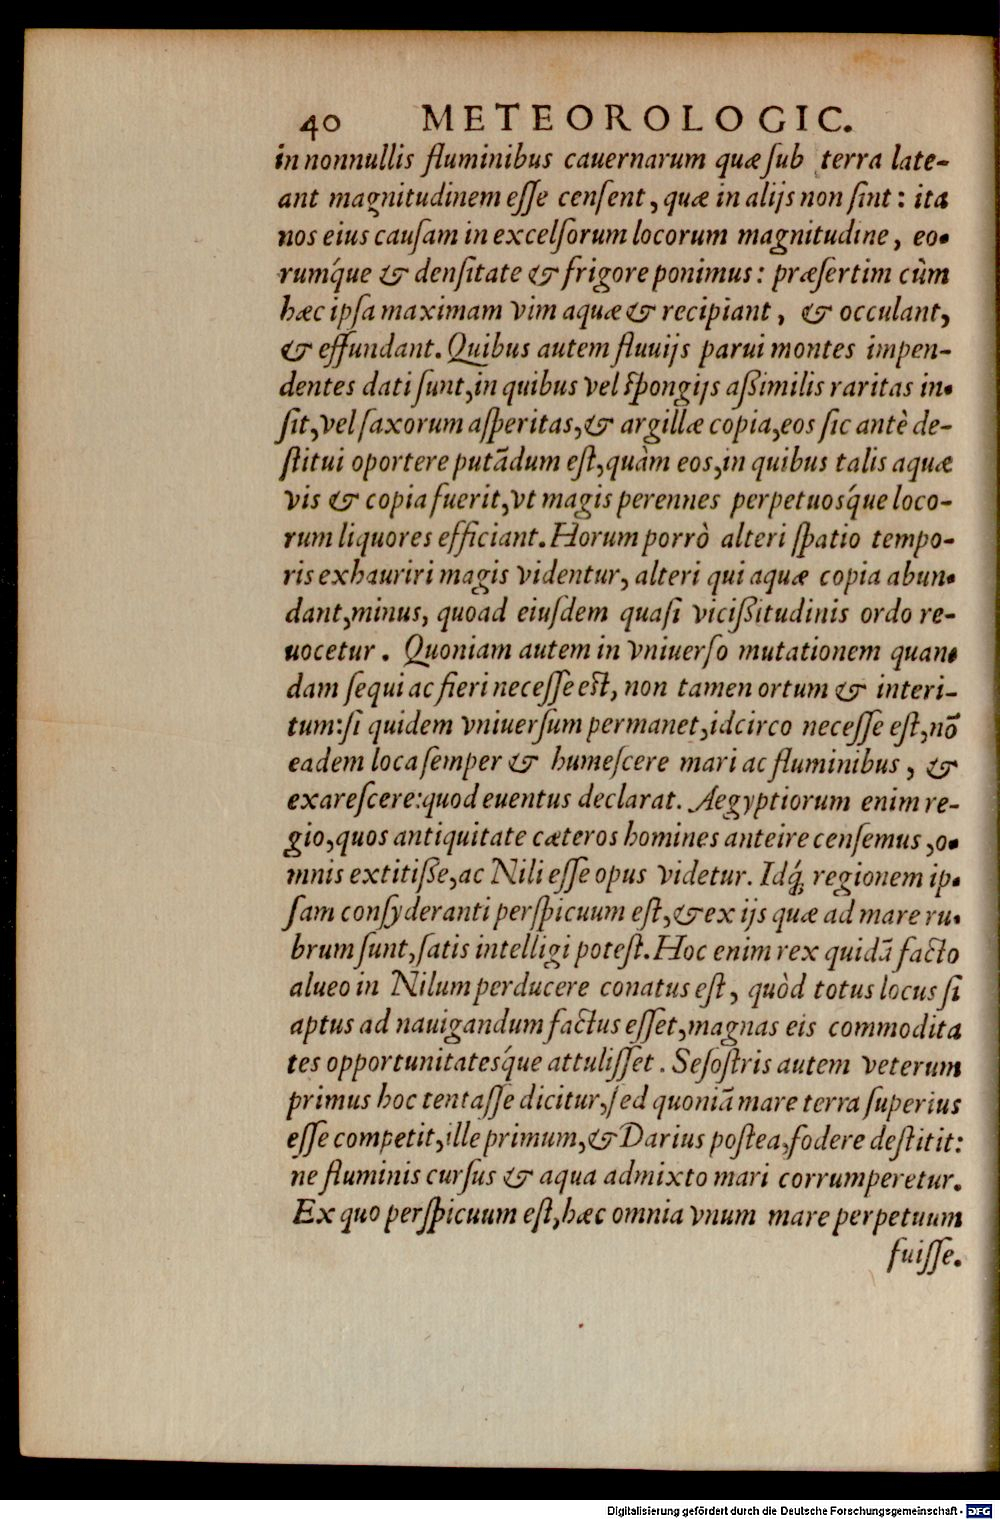 40 METEOROLOGIC.
in nonnullis fluminibus cauernarum quæ ſub terra late-
ant magnitudinem eſſe cenſent, quæ in alijs non ſint: ita
nos eius cauſam in excelſorum locorum magnitudine, eo-
rumq́ue & denſitate & frigore ponimus: præſertim cùm
hæc ipſa maximam vim aquæ & recipiant, & occulant,
& effundant. Quibus autem fluuijs parui montes impen-
dentes dati ſunt, in quibus vel ſpongijs aßimilis raritas in-
ſit, vel ſaxorum aſperitas, & argillæ copia, eos ſic antè de-
ſtitui oportere putãdum eſt, quàm eos, in quibus talis aquæ
vis & copia fuerit, vt magis perennes perpetuosq́ue loco-
rum liquores efficiant. Horum porrò alteri ſpatio tempo-
ris exhauriri magis videntur, alteri qui aquæ copia abun-
dant, minus, quoad eiuſdem quaſi vicißitudinis ordo re-
uocetur. Quoniam autem in vniuerſo mutationem quan-
dam ſequi ac fieri neceſſe eſt, non tamen ortum & interi-
tum: ſi quidem vniuerſum permanet, idcirco neceſſe eſt, nõ
eadem loca ſemper & humeſcere mari ac fluminibus, &
exareſcere: quod euentus declarat. Aegyptiorum enim re-
gio, quos antiquitate cæteros homines anteire cenſemus, o-
mnis extitiße, ac Nili eſſe opus videtur. Idq́; regionem ip-
ſam conſyderanti perſpicuum eſt, & ex ijs quæ ad mare ru-
brum ſunt, ſatis intelligi poteſt. Hoc enim rex quidã facto
alueo in Nilum perducere conatus eſt, quòd totus locus ſi
aptus ad nauigandum factus eſſet, magnas eis commodita
tes opportunitatesq́ue attuliſſet. Seſoſtris autem veterum
primus hoc tentaſſe dicitur, ſed quoniã mare terra ſuperius
eſſe competit, ille primum, & Darius poſtea, fodere deſtitit:
ne fluminis curſus & aqua admixto mari corrumperetur.
Ex quo perſpicuum eſt, hæc omnia vnum mare perpetuum
fuiſſe.
Digitalisierung gefördert durch die Deutsche Forschungsgemeinschaft - DFG